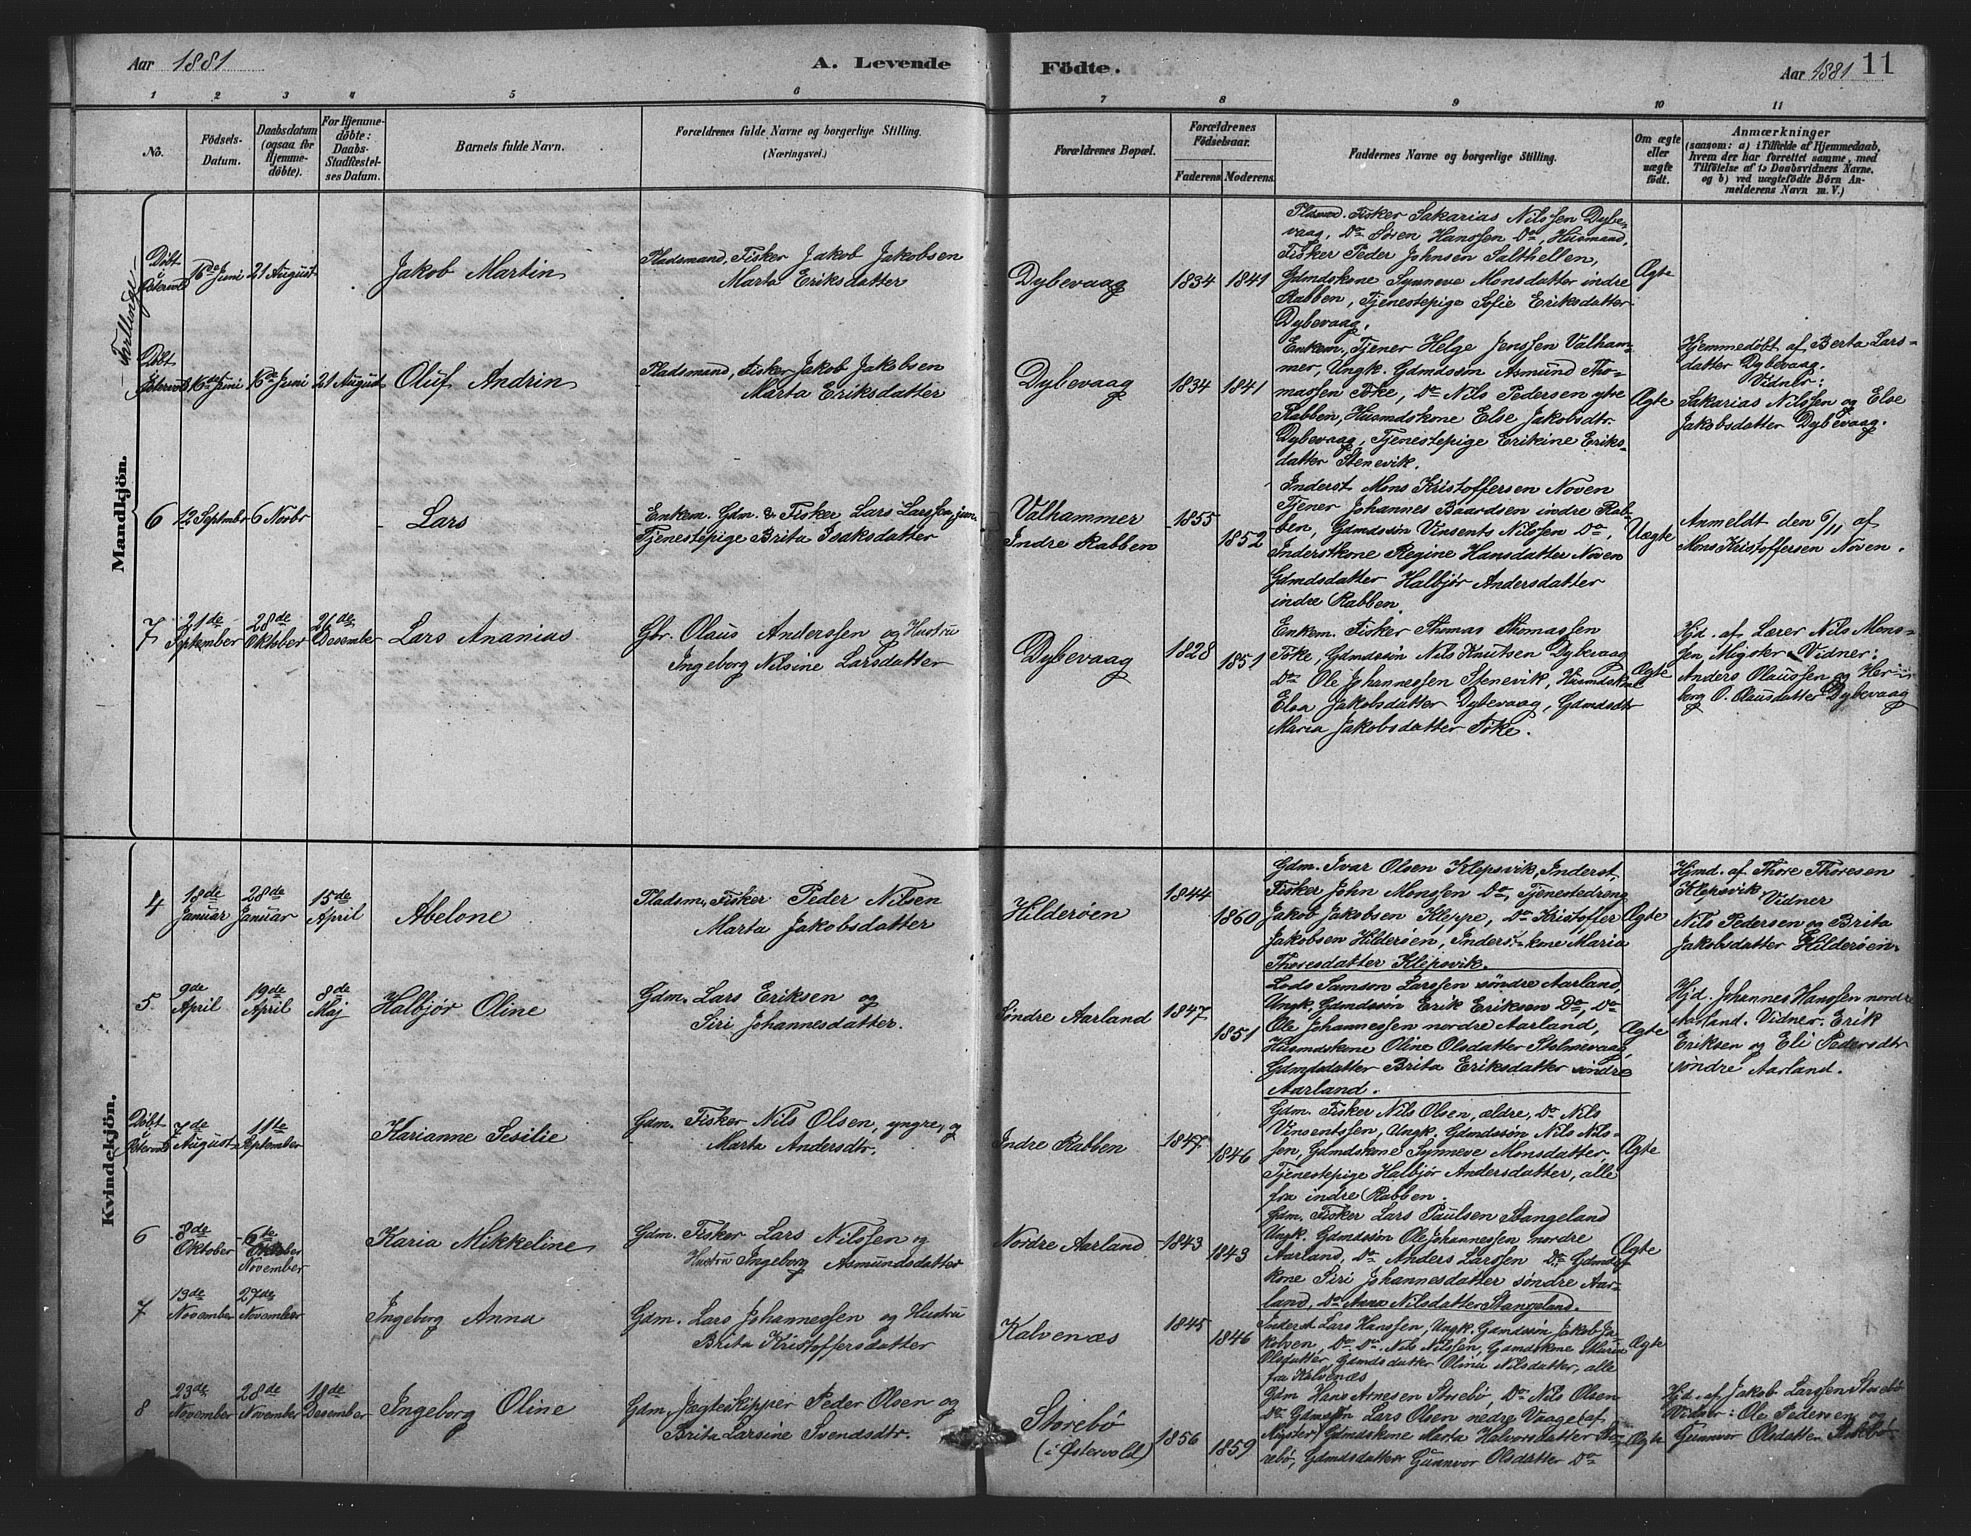 Aar 1881
A. Levende
Födte.
Aar 1881
11
1 2 3 4 5 6 7 8 9 10 11
No.
Födsels-
Datum.
Daabsdatum
(ogsaa for
Hjemme-
döbte).
For Hjemme-
döbte:
Daabs-
Stadfæstel-
ses Datum.
Barnets fulde Navn.
Forældrenes fulde Navne og borgerlige Stilling.
(Næringsvei.)
Forældrenes Bopæl.
Forældrenes
Födselsaar.
Faderens. Moderens.
Faddernes Navne og borgerlige Stilling.
Om ægte
eller
uægte
födt.
Anmærkninger
(saasom: a) i Tilfælde af Hjemmedaab,
hvem der har forrettet samme, med
Tilföielse af to Daabsvidners Navne,
og b) ved uægtefödte Börn An-
melderens Navn m. V.)
Mandkjön.
Tvillinge
Døbt
i
Østervold
16de Juni 21 August
Jakob Martin
Pladsmand, Fisker Jakob Jakobsen
Marta Eriksdatter
Dybevaag
1834 1841
Pladsmd. Fisker Sakarias Nilssen Dybe-
vaag, Do Søren Hanssen Do, Husmand,
Fisker Peder Johnsen Salthellen,
Gdmdskone Synneve Monsdatter indre
Rabben, Tjenestepige Sofie Eriksdatter
Dybevaag.
Ægte
Døbt
i Østervold
16de Juni 16de Juni 21 August
Oluf Andrin
Pladsmand, Fisker Jakob Jakobsen
Marta Eriksdatter
Dybevaag
1834 1841
Enkem. Tjener Helge Jenssen Valham-
mer, Ungk. Gdmdssøn Asmund Tho-
massen Toke, Do Nils Pedersen ytre
Rabben, Husmdskone Else Jakobsdtr.
Dybevaag, Tjenestepige Erikine Eriks-
datter Stenevik.
Ægte
Hjemmedøbt af Berta Lars-
datter Dybevaag.
Vidner:
Sakarias Nilssen og Else
Jakobsdatter Dybevaag.
6 12 Septmbr 6 Novbr
Lars
Enkem. Gdm. & Fisker Lars Larssen, jun.
Tjenestepige Brita Isaksdatter
Valhammer
Indre Rabben
1855
1852
Inderst Mons Kristoffersen Noven
Tjener Johannes Baardsen indre Rab-
ben, Gdmdssøn Vinsents Nilssen Do,
Inderstkone Regine Hansdatter Noven
Gdmdsdatter Halbjør Andersdatter
indre Rabben.
Uægte
Anmeldt den 6/11 af
Mons Kristoffersen Noven.
7
21de
September
28de
Oktober
26de
Desember
Lars Ananias
Gbr. Olaus Anderssen og Hustru
Ingeborg Nilsine Larsdatter
Dybevaag
1828
1851
Enkem. Fisker Thomas Thomassen
Toke, Gdmdssøn Nils Knutsen Dybevaag
Do Ole Johannessen Stenevik, Husmdskone
Elsa Jakobsdatter Dybevaag, Gdmdsdtr
Maria Jakobsdatter Toke.
Ægte
Hjd. af Lærer Nils Mons-
sen Migster. Vidner:
Anders Olaussen og Her-
borg O. Olausdatter Dybevaag
Kvindekjön.
4
18de
Januar
28de
Januar
15de
April
Abelone
Pladsm. Fisker Peder Nilsen
Marta Jakobsdatter
Hilderøen
1844
1860
Gdm. Ivar Olsen Klepsvik, Inderst,
Fisker John Monssen Do, Tjenestedreng
Jakob Jakobsen Kleppe, Do Kristoffer
Jakobsen Hilderøen, Inderstkone Maria
Thoresdatter Klepsvik.
Ægte
Hjmd. af Thore Thoresen
Klepsvik
Vidner
Nils Pedersen og Brita
Jakobsdatter Hilderøen.
5
9de
April
19de
April
8de
Maj
Halbjør Oline
Gdm. Lars Eriksen og
Siri Johannesdatter.
Søndre Aarland
1847
1851
Lods Samson Larssen søndre Aarland,
Ungk. Gdmdssøn Erik Eriksen Do, Do
Ole Johannessen nordre Aarland,
Husmdskone Oline Olsdatter Stolmevaag,
Gdmdsdatter Brita Eriksdatter søndre
Aarland.
Ægte
Hjd. Johannes Hanssen nordre
Aarland. Vidner. Erik
Eriksen og Eli Pedersdtr
søndre Aarland.
Døbt
i
Østervold
7de
August
11te
September
Karianne Sesilie
Gdm. Fisker Nils Olsen, yngre, og
Marta Andersdtr.
Indre Rabben
1847
1846
Gdm. Fisker Nils Olsen, ældre, Do Nils
Vinsentssen, Ungk. Gdmdssøn Nils Nils-
sen, Gdmdskone Synneve Monsdatter,
Tjenestepige Halbjør Andersdatter, alle
fra indre Rabben.
Ægte
6
8de
Oktober
6te
Oktober
November
Karia Mikkeline
Gdm. Fisker Lars Nilssen og
Hustru Ingeborg Asmundsdatter
Nordre Aarland
1843
1843
Gdm. Fisker Lars Paulsen Stangeland
Ungk. Gdmdssøn Ole Johannessen nordre
Aarland, Do Anders Larssen Do, Gdmds-
kone Siri Johannesdatter søndre Aar-
land, Do Anna Nilsdatter Stangeland.
Ægte
7
13de
November
27de
November
Ingeborg Anna
Gdm. Lars Johannessen og Hustru
Brita Kristoffersdatter
Kalvenæs
1845
1846
Inderst Lars Hanssen, Ungk. Gdmdssøn Jakob Ja-
kobsen, Do Do Nils Nilssen, Gdmdskone Maria
Olsdatter, Gdmdsdatter Olina Nilsdatter, alle
fra Kalvenæs
Ægte
8
23de
November
28de
November
18de
Desember
Ingeborg Oline
Gdm. Jægteskipper Peder Olsen og
Brita Larsine Svendsdtr.
Storebø
(i Østervold)
1856
1859
Gdm Hans Arnesen Storebø, Do Nils Olsen
Do Gdmssøn Lars Olsen nedre Vaage (af
Møster) Gdmdskone Marta Halvorsdatter Sto-
rebø, Gdmdsdatter Gunnvor Olsdatter Do
Ægte
Hjd. af Jakob Larssen Storebø
Vidner: Ole Pedersen og
Gunnvor Olsdatter Storebø.